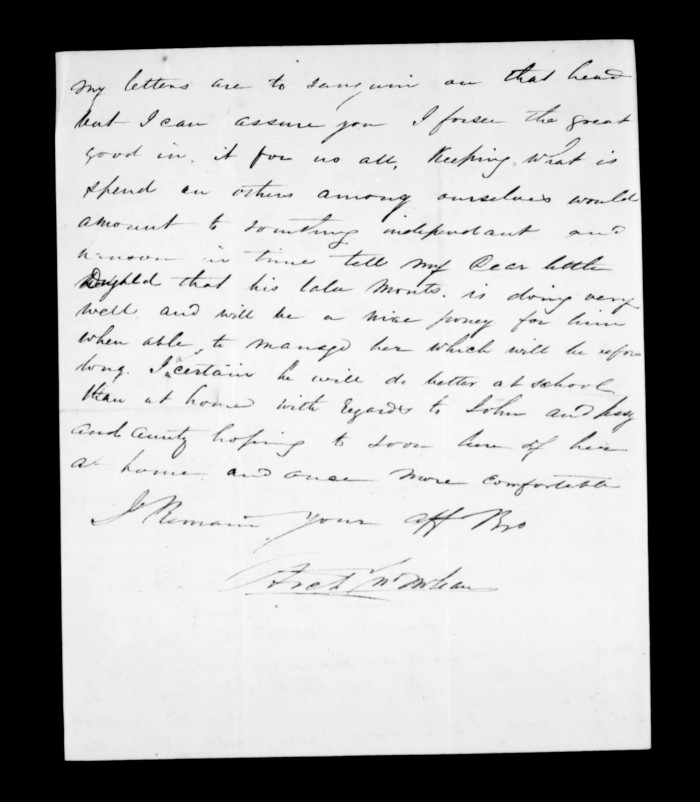 my letters are to sanguin on that head
but I can assure you I forsee the great
good in it for us all, Keeping what is
spend on others among ourselves would
amount to somthing independant and
in time tell my Dear little
Dughld that his lala Monts. is doing very
well and will be a nice poney for him
when able to manage her which will be efore
long. I certain he will do better at school
than at home with regards to John and
and aunty hoping to soon here of her
at home and once more comfortable
I Remain your aff Bro
Archd McLean